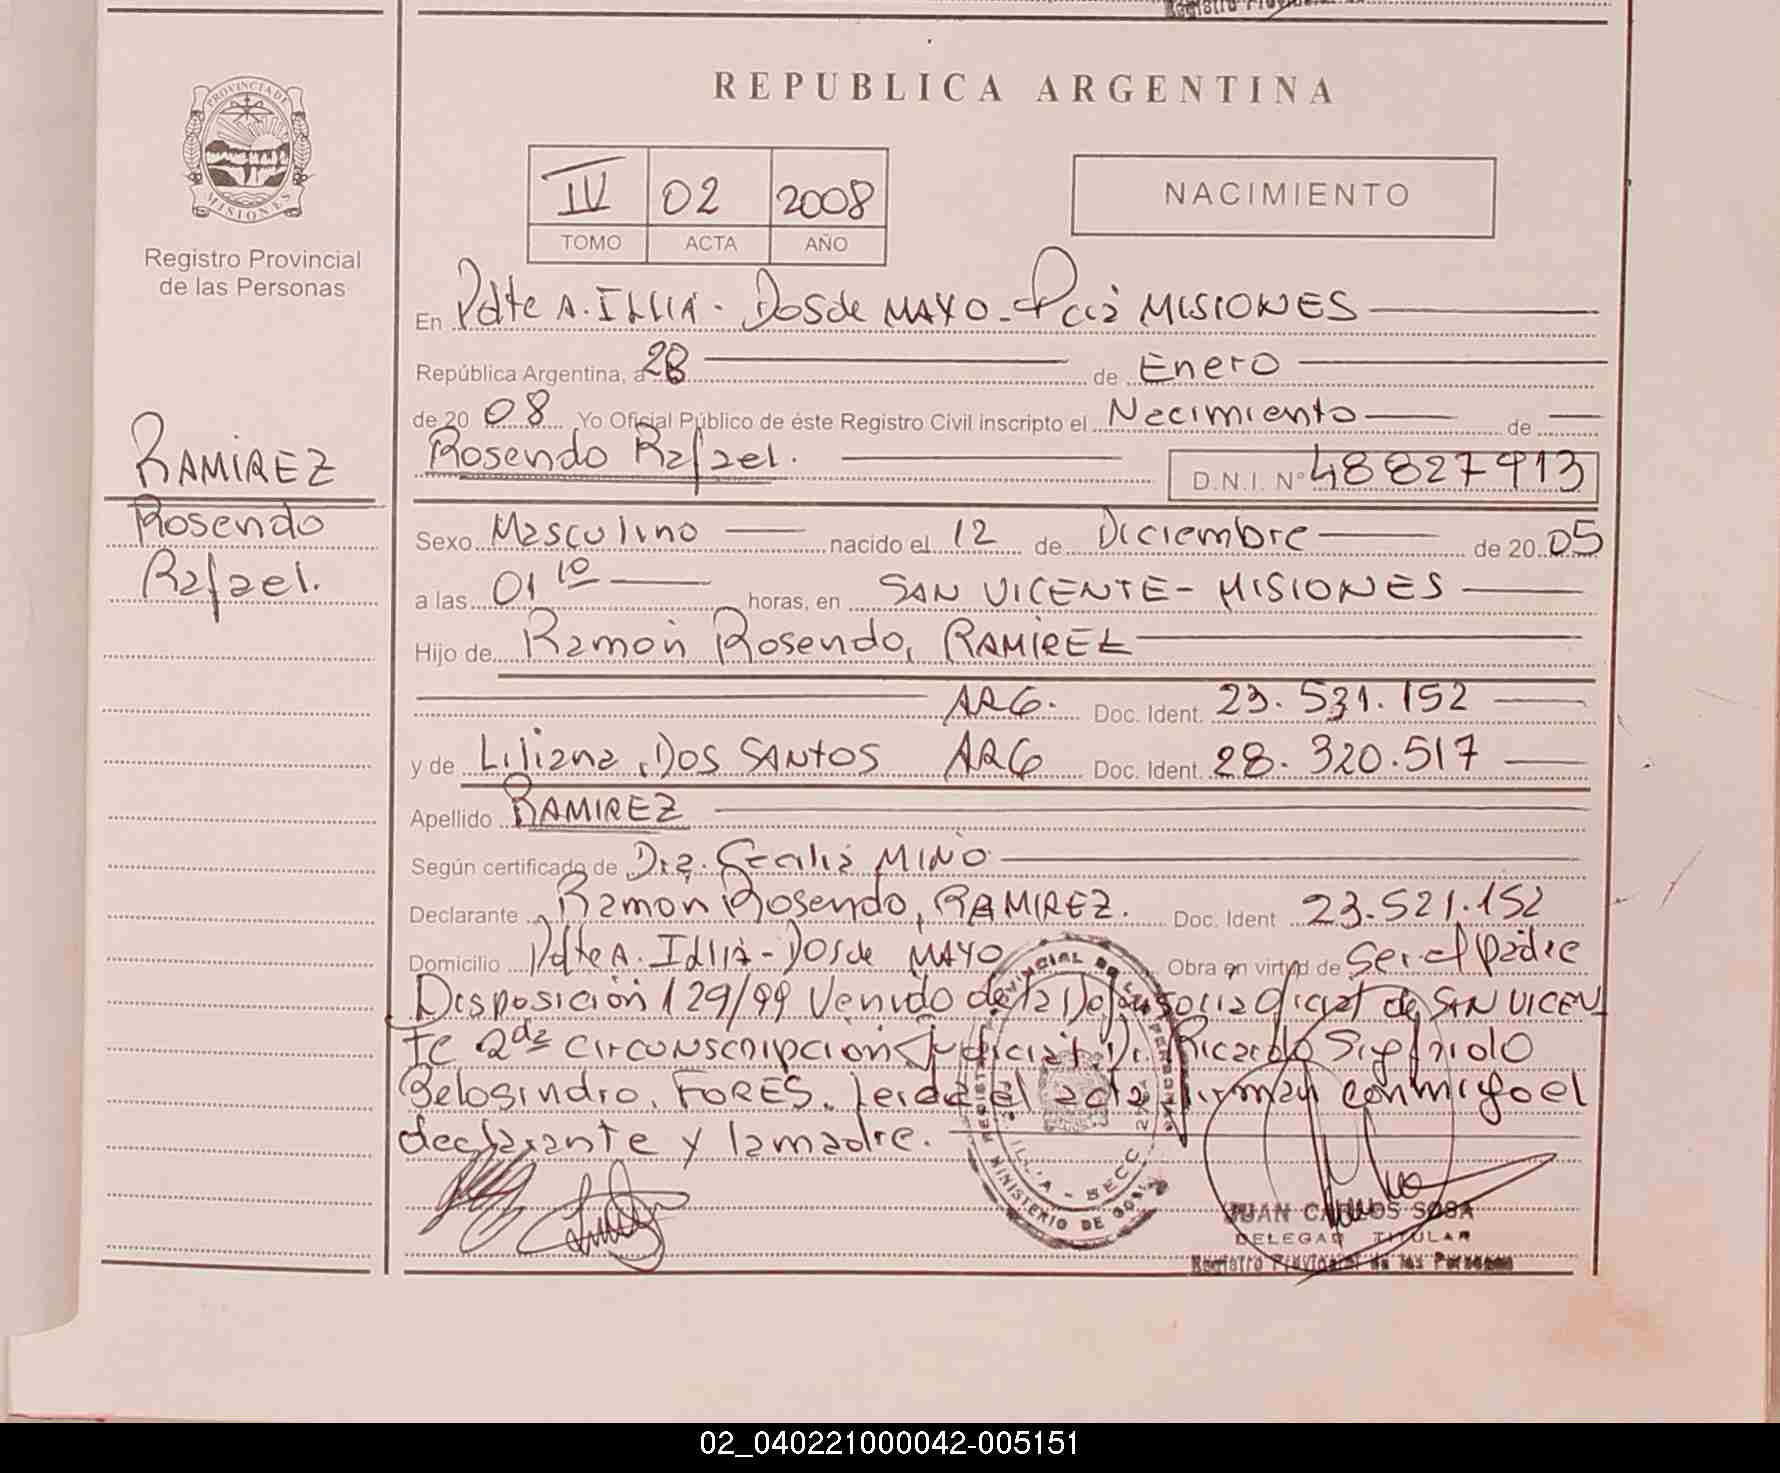 Registro Provincial
REPUBLICA ARGENTINA
PROVINCIA DE
MISIONES
Registro Provincial
de las Personas
IV 02 2008
TOMO ACTA AÑO
NACIMIENTO
En Pdte A. ILLIA - Dos de MAYO - Pcia MISIONES
República Argentina, a 28 de Enero
de 20 08 Yo Oficial Público de éste Registro Civil inscripto el Nacimiento de
Rosendo Rafael. D.N.I. Nº 48827913
RAMIREZ
Rosendo
Rafael.
Sexo Masculino nacido el 12 de Diciembre de 20 05
a las 01 10 horas, en SAN VICENTE - MISIONES
Hijo de Ramón Rosendo, RAMIREZ
ARG. Doc. Ident. 23.521.152
y de Liliana, DOS SANTOS ARG Doc. Ident. 28.320.517
Apellido RAMIREZ
Según certificado de Dra. Cecilia MIÑO
Declarante Ramon Rosendo, RAMIREZ. Doc. Ident 23.521.152
Domicilio Pdte A. Illia - Dos de MAYO Obra en virtud de Ser el padre
Disposición 129/99 Venido de la Defensoria Oficial de SAN VICEN
TE 2da Circunscripción Judicial Dr. Ricardo
FORES. Leida el acta firman conmigo el
declarante y la madre.
MINISTERIO DE GOB.
JUAN CARLOS SOSA
DELEGADO TITULAR
Registro Provincial de las Personas
02_040221000042-005151